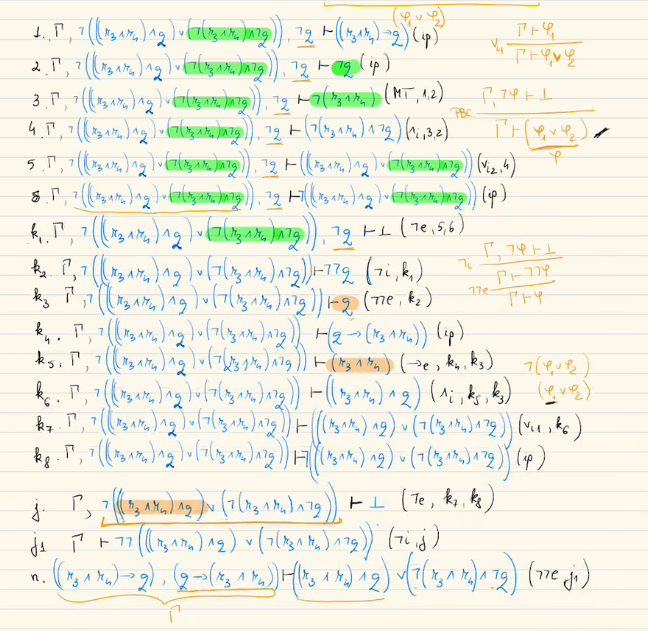 (φ₁∨φ₂)
1. Γ, ¬(((r₃∧r₄)∧q)∨(¬(r₃∧r₄)∧¬q)), ¬q ⊢((r₃∧r₄)→q) (ip)
∨i₁ Γ⊢φ₁
Γ⊢φ₁∨φ₂
2. Γ, ¬(((r₃∧r₄)∧q)∨(¬(r₃∧r₄)∧¬q)), ¬q ⊢ ¬q (ip)
3. Γ, ¬(((r₃∧r₄)∧q)∨(¬(r₃∧r₄)∧¬q)), ¬q ⊢ ¬(r₃∧r₄) (MT, 1,2)
PBC Γ,¬φ⊢⊥
Γ⊢(φ₁∨φ₂)
φ
4. Γ, ¬(((r₃∧r₄)∧q)∨(¬(r₃∧r₄)∧¬q)), ¬q ⊢(¬(r₃∧r₄)∧¬q) (∧i,3,2)
5. Γ, ¬(((r₃∧r₄)∧q)∨(¬(r₃∧r₄)∧¬q)), ¬q ⊢(((r₃∧r₄)∧q)∨(¬(r₃∧r₄)∧¬q)) (∨i₂,4)
6. Γ, ¬(((r₃∧r₄)∧q)∨(¬(r₃∧r₄)∧¬q)), ¬q ⊢¬(((r₃∧r₄)∧q)∨(¬(r₃∧r₄)∧¬q)) (ip)
k₁. Γ, ¬(((r₃∧r₄)∧q)∨(¬(r₃∧r₄)∧¬q)), ¬q ⊢⊥ (¬e,5,6)
k₂. Γ, ¬(((r₃∧r₄)∧q)∨(¬(r₃∧r₄)∧¬q)) ⊢¬¬q (¬i,k₁)
¬i Γ,¬φ⊢⊥
Γ⊢¬¬φ
¬¬e Γ⊢φ
k₃ Γ, ¬(((r₃∧r₄)∧q)∨(¬(r₃∧r₄)∧¬q)) ⊢q (¬¬e,k₂)
k₄. Γ, ¬(((r₃∧r₄)∧q)∨(¬(r₃∧r₄)∧¬q)) ⊢(q→(r₃∧r₄)) (ip)
k₅. Γ, ¬(((r₃∧r₄)∧q)∨(¬(r₃∧r₄)∧¬q)) ⊢(r₃∧r₄) (→e,k₄,k₃)
¬(φ₁∨φ₂)
k₆. Γ, ¬(((r₃∧r₄)∧q)∨(¬(r₃∧r₄)∧¬q)) ⊢((r₃∧r₄)∧q) (∧i,k₅,k₃)
(φ₁∨φ₂)
k₇. Γ, ¬(((r₃∧r₄)∧q)∨(¬(r₃∧r₄)∧¬q)) ⊢(((r₃∧r₄)∧q)∨(¬(r₃∧r₄)∧¬q)) (∨i₁,k₆)
k₈. Γ, ¬(((r₃∧r₄)∧q)∨(¬(r₃∧r₄)∧¬q)) ⊢¬(((r₃∧r₄)∧q)∨(¬(r₃∧r₄)∧¬q)) (ip)
j. Γ, ¬(((r₃∧r₄)∧q)∨(¬(r₃∧r₄)∧¬q)) ⊢⊥ (¬e,k₇,k₈)
j1 Γ ⊢¬¬(((r₃∧r₄)∧q)∨(¬(r₃∧r₄)∧¬q)) (¬i,j)
n. ((r₃∧r₄)→q), (q→(r₃∧r₄)) ⊢((r₃∧r₄)∧q)∨(¬(r₃∧r₄)∧¬q) (¬¬e,j1)
Γ